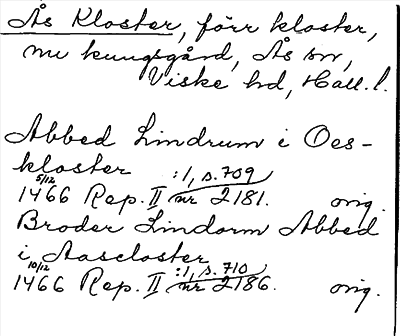 Ås Kloster, förr kloster,
nu kungsgård, Ås sn,
Viske hd, Hall. l.
Abbed Lindrum i Oes-
kloster :1, s. 709
5/12
1466 Rep. II nr 2181. orig.
Broder Lindorm Abbed
i Aascloster
10/12 :1, s. 710
1466 Rep. II nr 2186. orig.